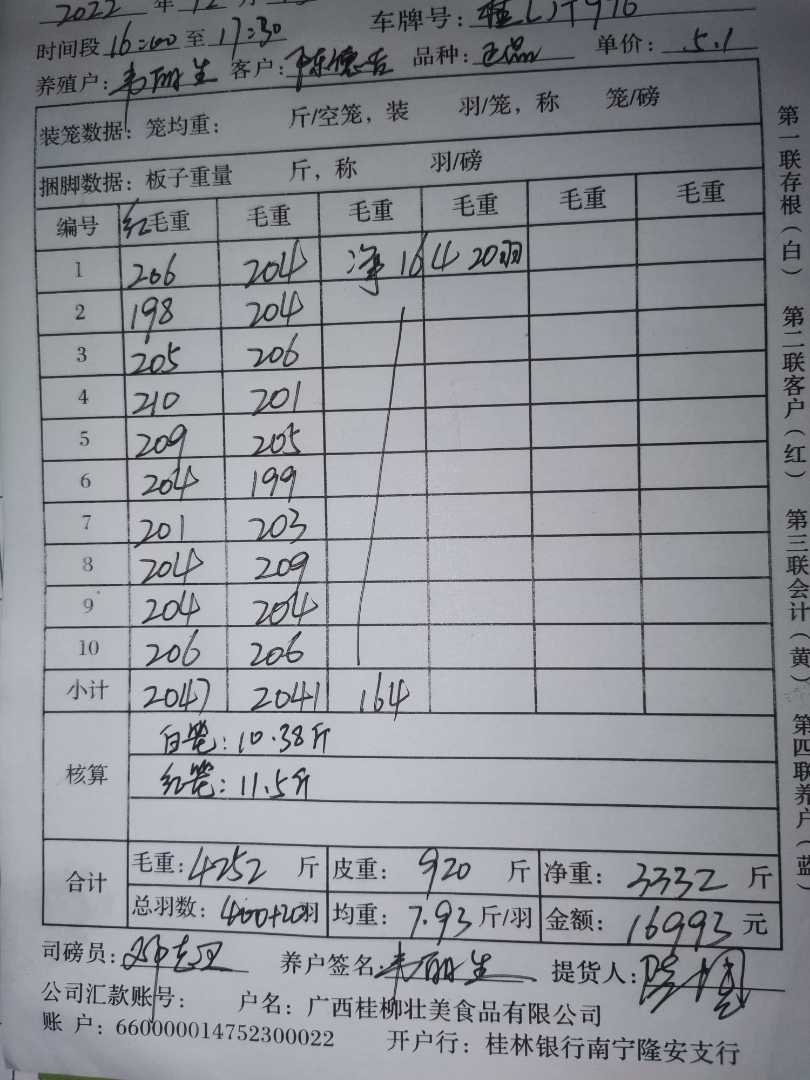 2022 年 12 月
时间段 16:00 至 17:30 车牌号:桂
养殖户: 韦丽生 客户: 陈德 品种: 单价: 5.1
装笼数据: 笼均重: 斤/空笼,装 羽/笼,称 笼/磅
捆脚数据: 板子重量 斤,称 羽/磅
编号 红毛重 毛重 毛重 毛重 毛重 毛重
1 206 204 净164 20羽
2 198 204
3 205 206
4 210 201
5 209 205
6 204 199
7 201 203
8 204 209
9 204 204
10 206 206
小计 2047 2041 164
核算 白笼:10.38斤
红笼:11.5斤
合计 毛重:4252 斤 皮重: 920 斤 净重: 3332 斤
总羽数:400+20羽 均重: 7.93 斤/羽 金额: 16993 元
司磅员: 养户签名: 韦丽生 提货人:
公司汇款账号: 户名:广西桂柳壮美食品有限公司
账 户:660000014752300022 开户行:桂林银行南宁隆安支行
第一联存根(白) 第二联客户(红) 第三联会计(黄) 第四联养户(蓝)